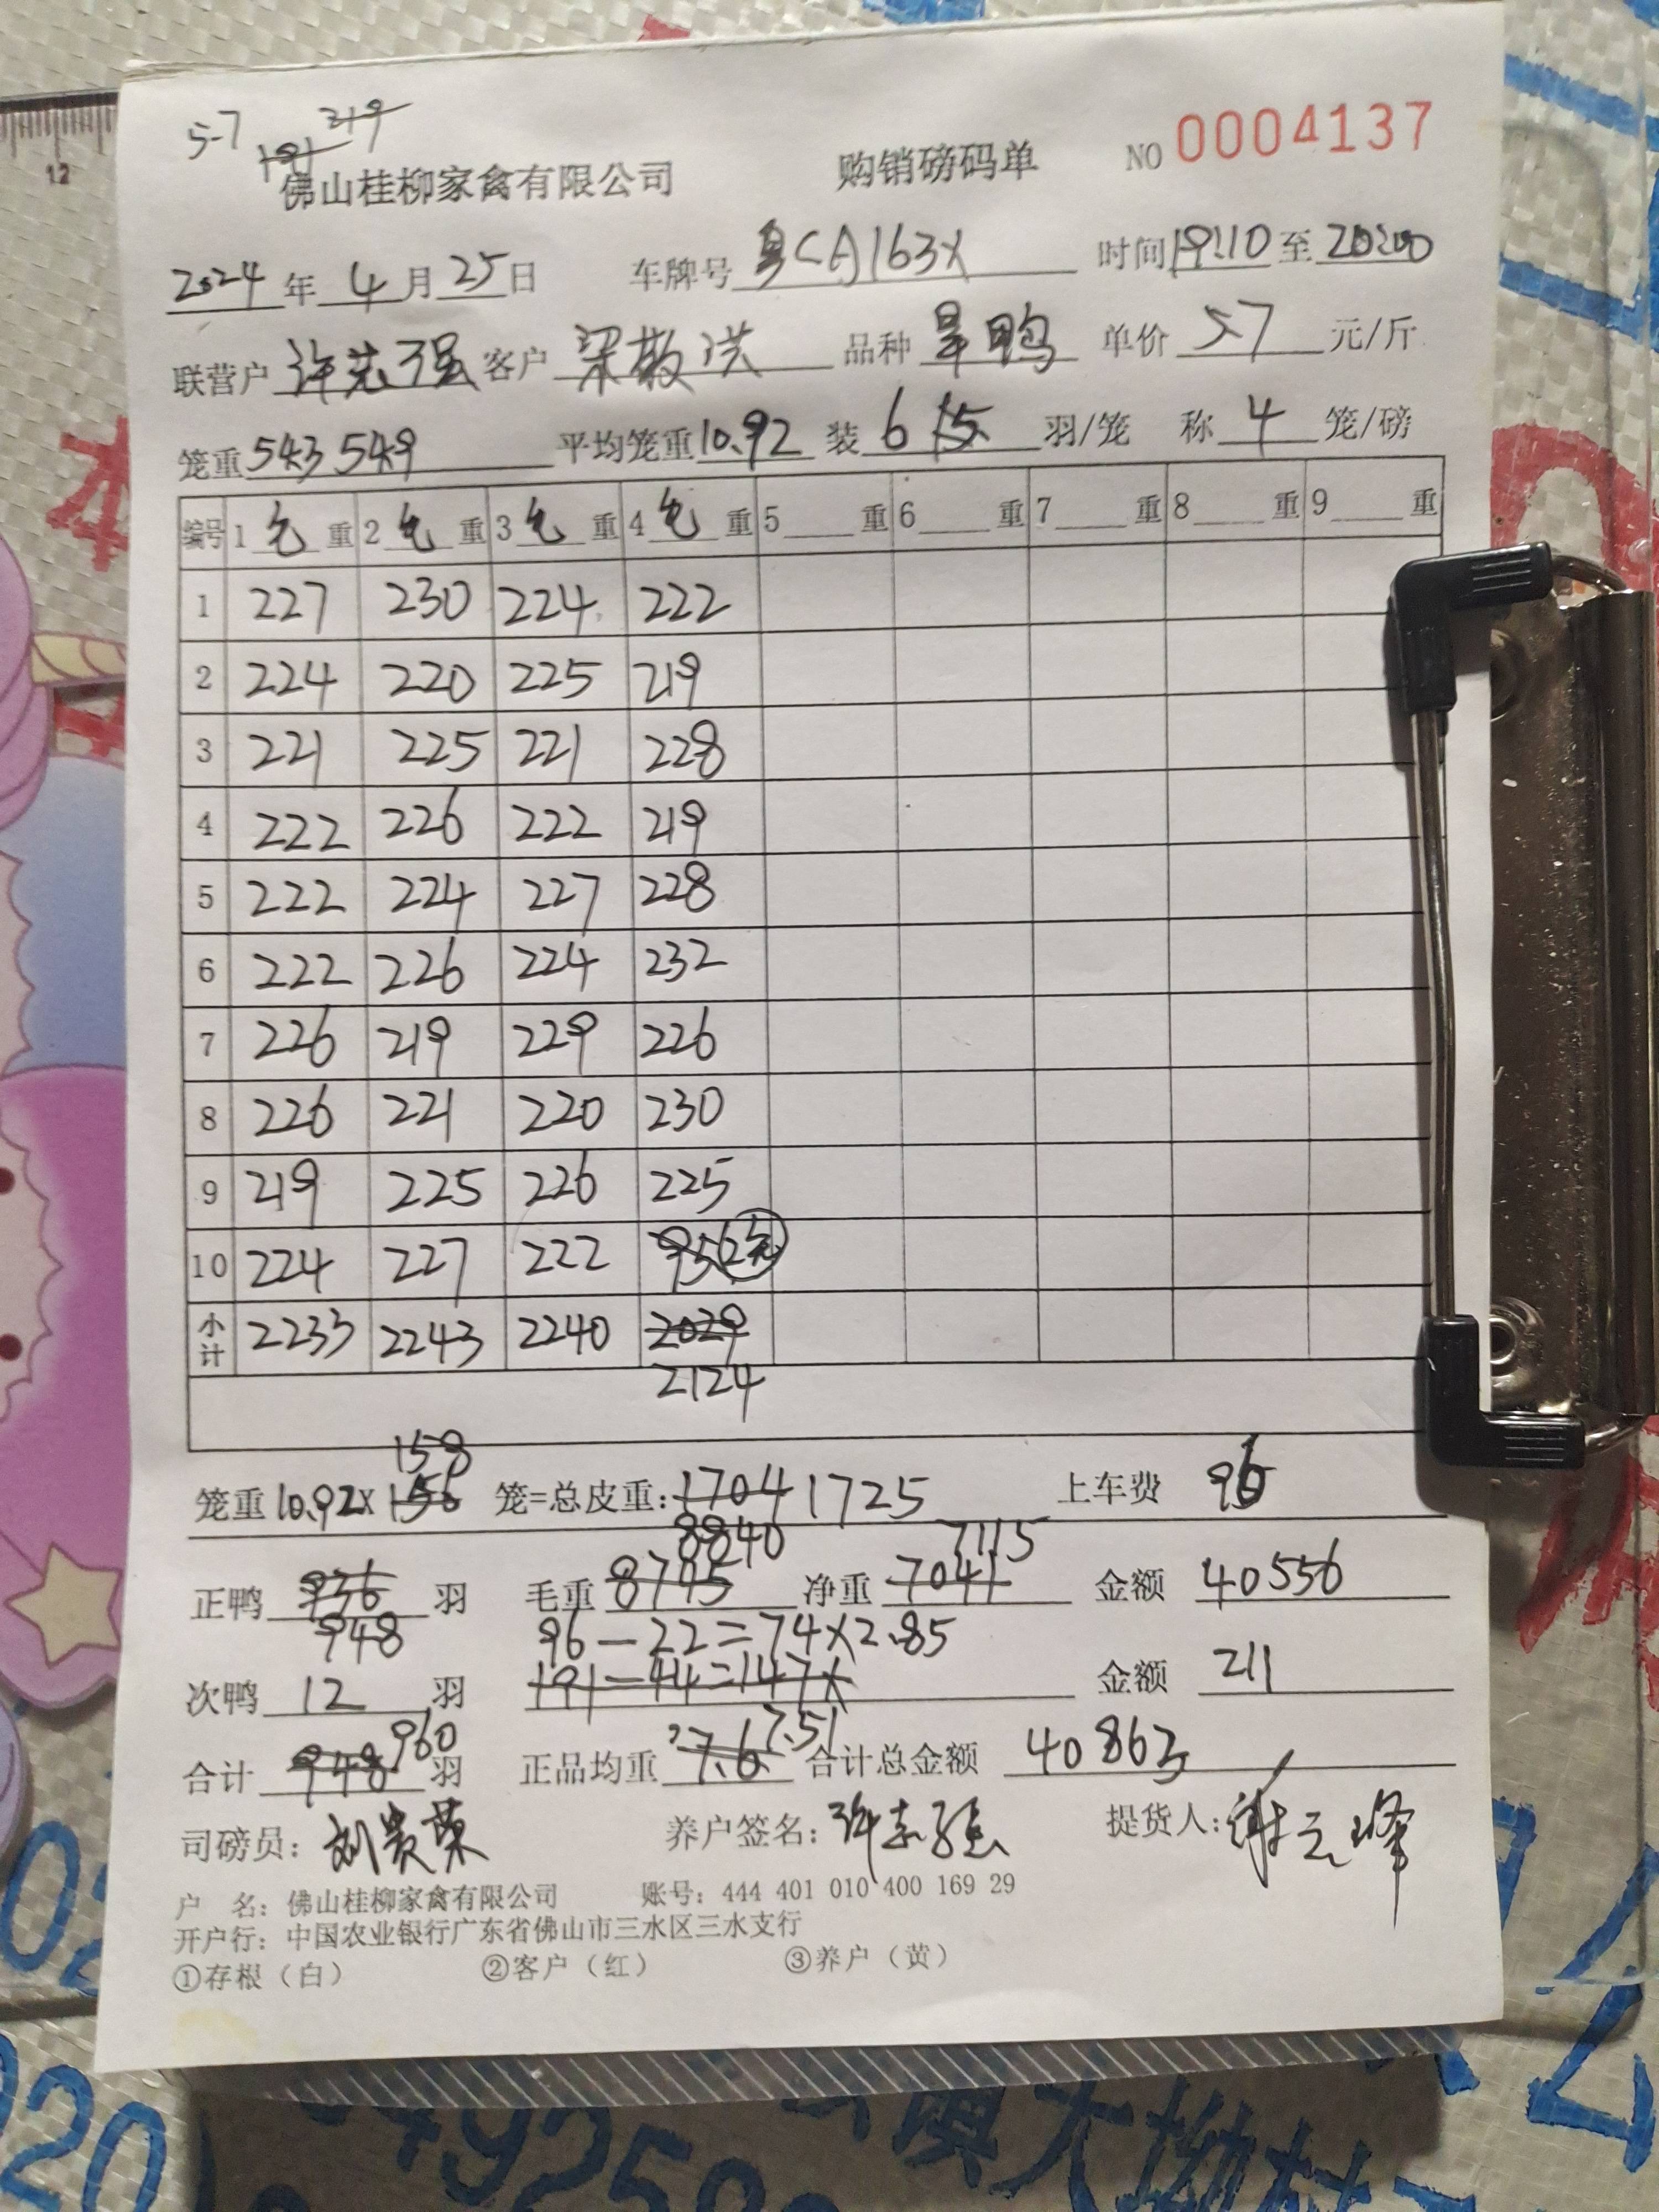 5-7 191 219
佛山桂柳家禽有限公司 购销磅码单 NO 0004137
2024年4月25日 车牌号 粤CA163X 时间19:10至20:00
联营户 许志强 客户 品种 旱鸭 单价 5-7 元/斤
笼重 543 549 平均笼重 10.92 装 6 羽/笼 称 4 笼/磅
编号 1毛重 2毛重 3毛重 4毛重 5重 6重 7重 8重 9重
1 227 230 224 222
2 224 220 225 219
3 221 225 221 228
4 222 226 222 219
5 222 224 227 228
6 222 226 224 232
7 226 219 229 226
8 226 221 220 230
9 219 225 226 225
10 224 227 222 95
小计 2233 2243 2240 2029
2124
158
笼重 10.92X156 笼=总皮重:1704 1725 上车费 96
8840 7115
正鸭 936 羽 毛重 8745 净重 7041 金额 40556
948 96-22=74X2.85
次鸭 12 羽 191-44=147X 金额 211
960 7.51
合计 948 羽 正品均重 7.6 合计总金额 40863
司磅员: 刘贵荣 养户签名: 许志强 提货人: 谢云峰
户 名: 佛山桂柳家禽有限公司 账号: 444 401 010 400 169 29
开户行: 中国农业银行广东省佛山市三水区三水支行
①存根(白) ②客户(红) ③养户(黄)
12